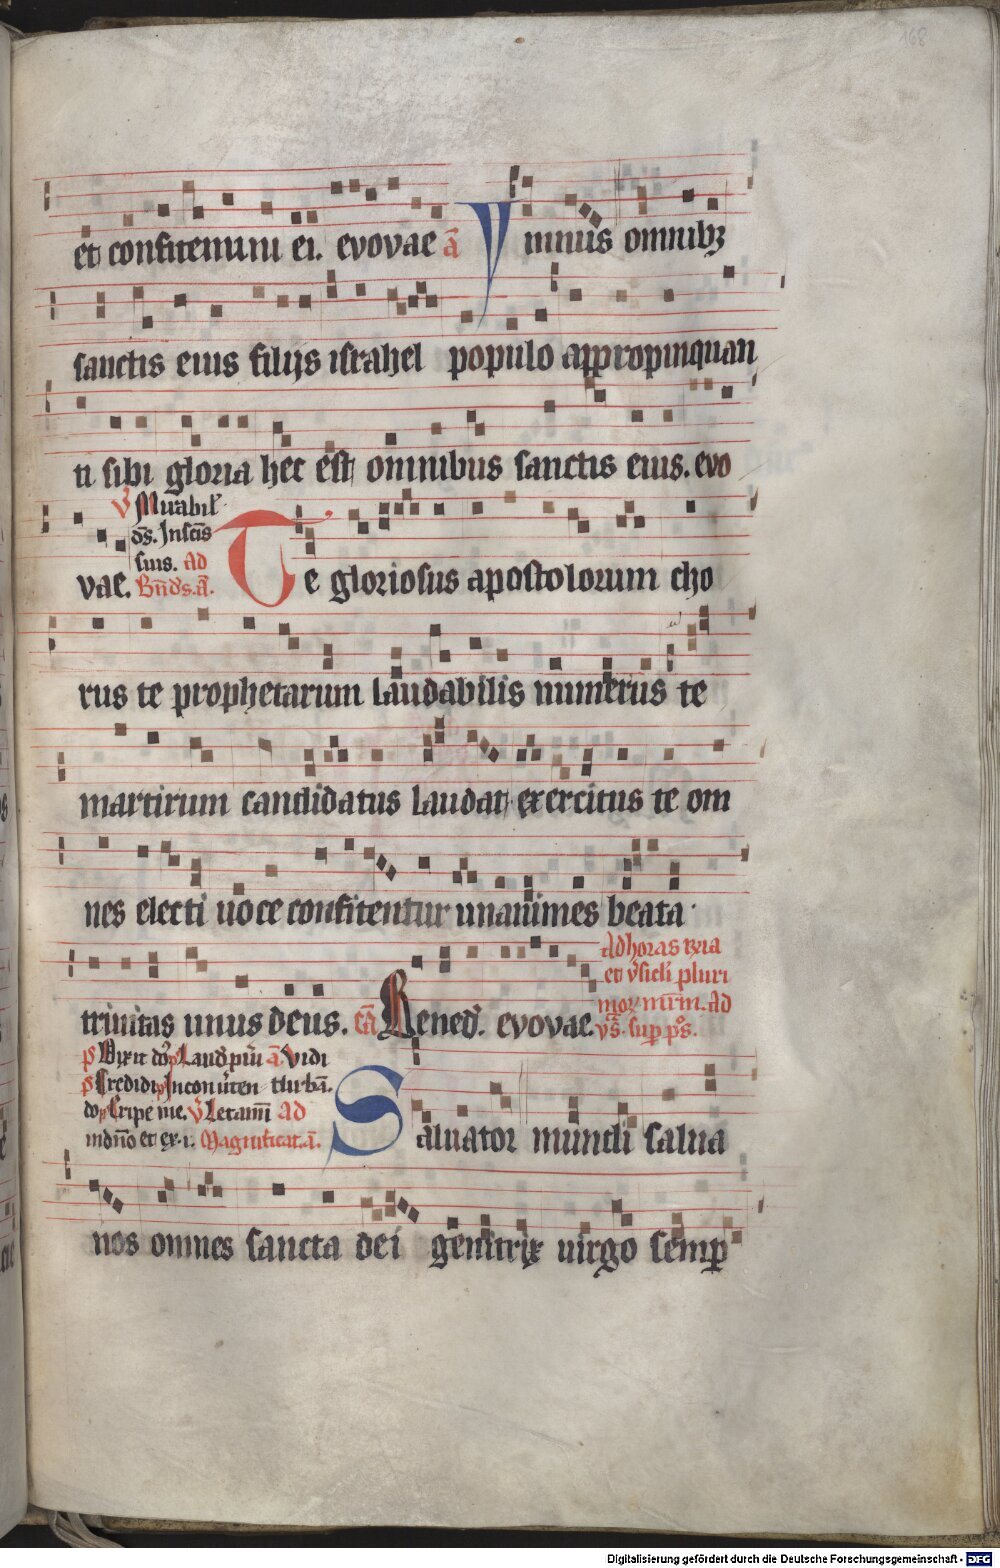 168
et confitemini ei. evovae ā Ymnus omnibꝫ
sanctis eius filijs israhel populo appropinquan
ti sibi gloria hec est omnibus sanctis eius. evo
v̄ Mirabil'
ds̄. In scīs
suis. Ad
vae. Bn̄ds. ā. Te gloriosus apostolorum cho
rus te prophetarum laudabilis numerus te
martirum candidatus laudat exercitus te om
nes electi uoce confitentur unanimes beata
trinitas unus deus. cā Bened. evovae.
Ad horas
et v̄sicli pluri
morꝝ mr̄m. Ad
vs̄. sup ps̄.
p̄ Dixit do. p̄ Laud. pūi ā Vidi
p̄ Credidi p̄ In conuerten turbā.
do p̄ Eripe me. v̄ Letamī Ad
in dn̄o et ex. i. Magnificat. ā. Saluator mundi salua
nos omnes sancta dei genitrix uirgo semp
Digitalisierung gefördert durch die Deutsche Forschungsgemeinschaft - DFG